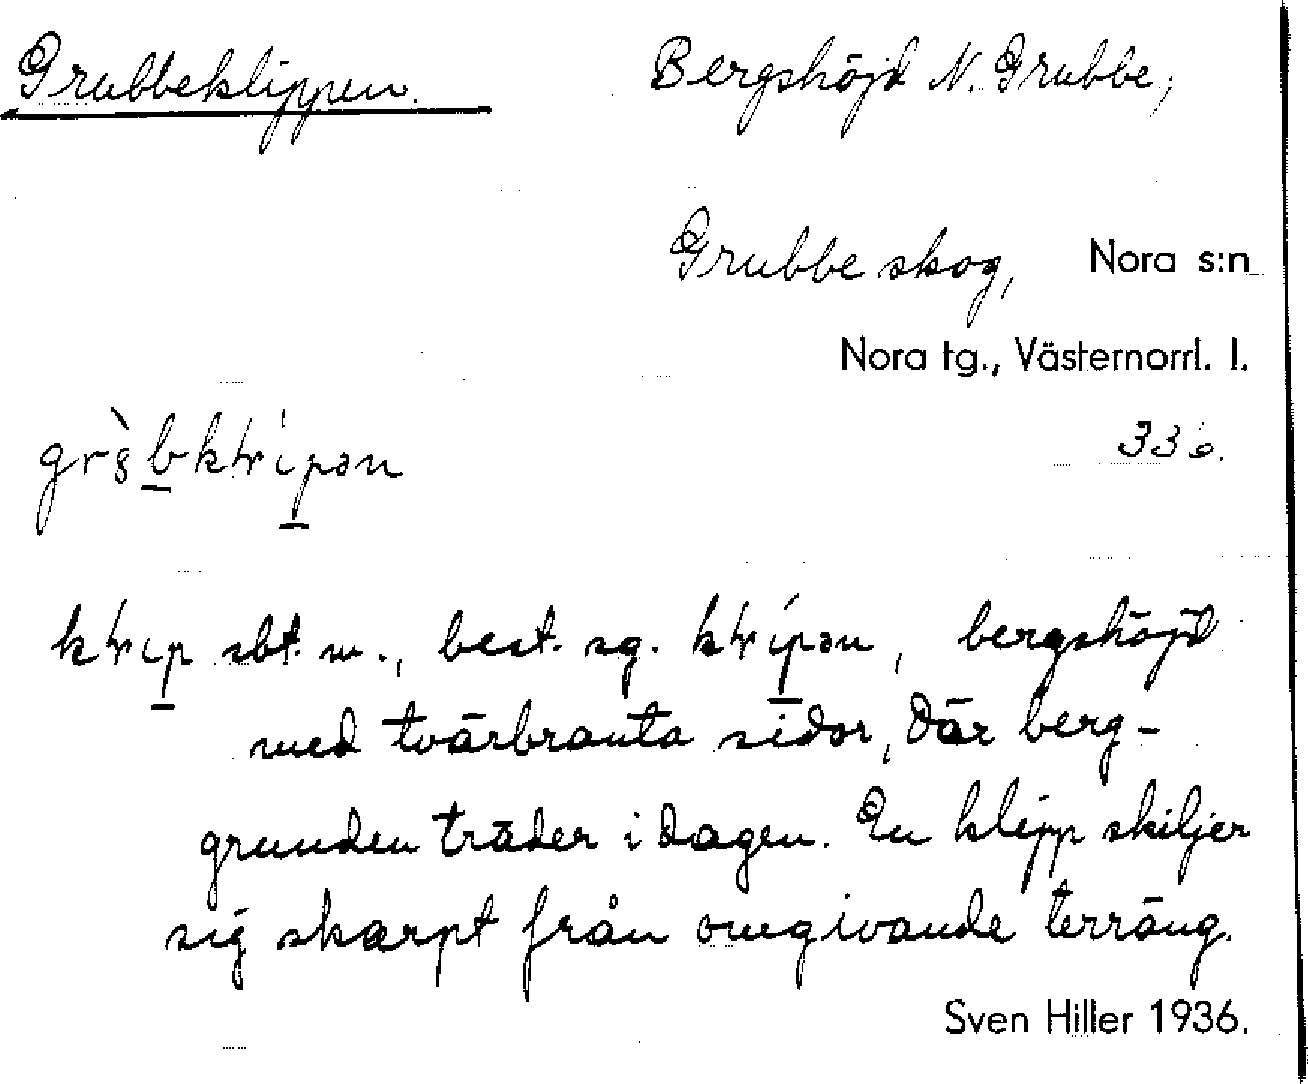 Grubbeklippen. Bergshöjd N. Grubbe,
Grubbe skog, Nora s:n
Nora tg., Västernorrl. l.
336.
sbt. m., best. sg. bergshöjd
med tvärbranta sidor, där berg-
grunden träder i dagen. En klipp skiljer
sig skarpt från omgivande terräng.
Sven Hiller 1936.